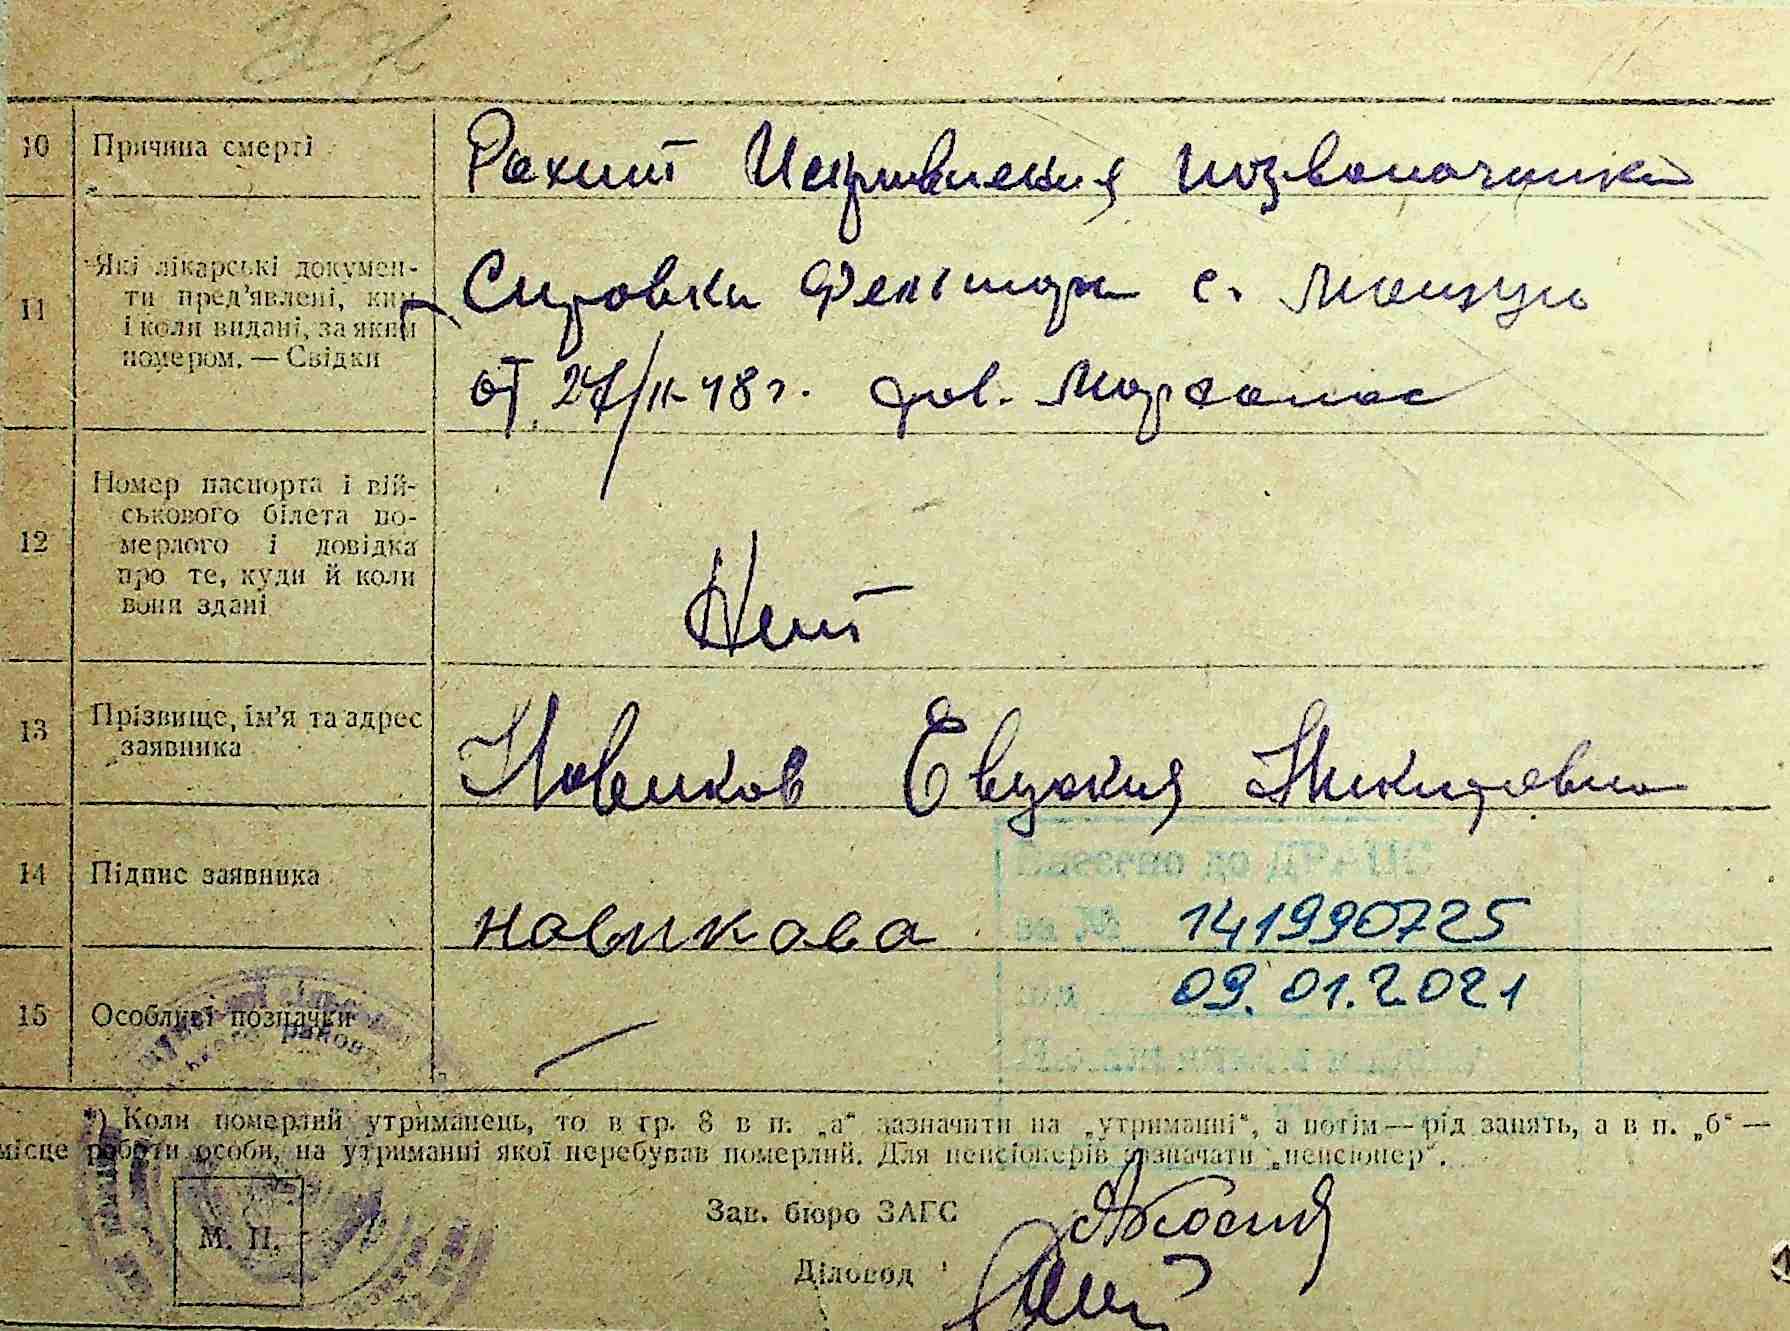 10 Причина смерті Рахит Искривления позвоночника
11 Які лікарські докумен-
ти пред'явлені, ким
і коли видані, за яким
номером. — Свідки
Справка фельшара с.
от 27/II-48 г.
12 Номер паспорта і вій-
ськового білета по-
мерлого і довідка
про те, куди й коли
вони здані
Нет
13 Прізвище, ім'я та адрес
заявника
Новиков Евдокия Никитовна
14 Підпис заявника
новикова
Внесено до ДРАЦС
за № 141990725
09.01.2021
15 Особливі позначки —
*) Коли померлий утриманець, то в гр. 8 в п. „а“ зазначити на „утриманні“, а потім — рід занять, а в п. „б“ —
місце роботи особи, на утриманні якої перебував померлий. Для пенсіонерів зазначати „пенсіонер“.
Зав. бюро ЗАГС
М. П.
Діловод